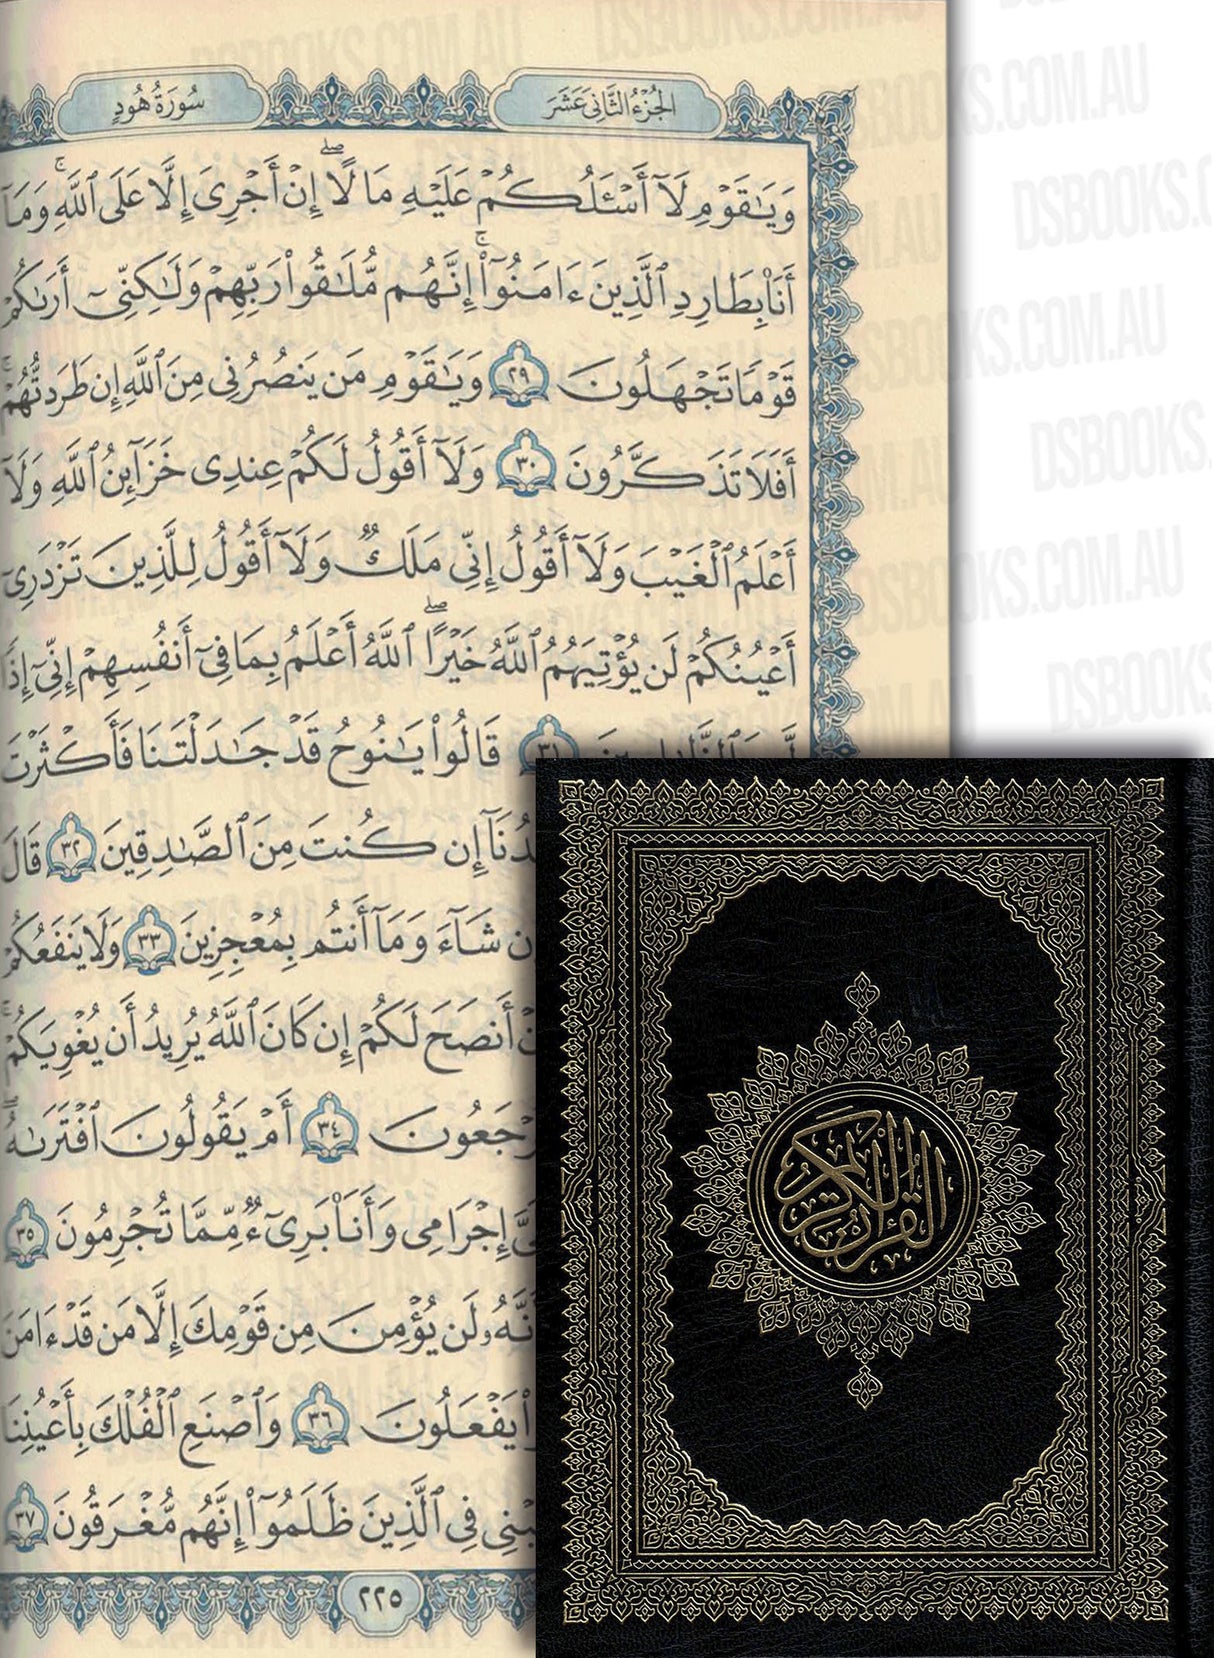 الجُزْءُ الثَّانِي عَشَرَ
سُورَةُ هُودٍ
وَيَٰقَوْمِ لَآ أَسْـَٔلُكُمْ عَلَيْهِ مَالًا ۖ إِنْ أَجْرِىَ إِلَّا عَلَى ٱللَّهِ ۚ وَمَآ
أَنَا۠ بِطَارِدِ ٱلَّذِينَ ءَامَنُوٓا۟ ۚ إِنَّهُم مُّلَٰقُوا۟ رَبِّهِمْ وَلَٰكِنِّىٓ أَرَىٰكُمْ
قَوْمًا تَجْهَلُونَ ٢٩ وَيَٰقَوْمِ مَن يَنصُرُنِى مِنَ ٱللَّهِ إِن طَرَدتُّهُمْ ۚ
أَفَلَا تَذَكَّرُونَ ٣٠ وَلَآ أَقُولُ لَكُمْ عِندِى خَزَآئِنُ ٱللَّهِ وَلَآ
أَعْلَمُ ٱلْغَيْبَ وَلَآ أَقُولُ إِنِّى مَلَكٌ وَلَآ أَقُولُ لِلَّذِينَ تَزْدَرِىٓ
أَعْيُنُكُمْ لَن يُؤْتِيَهُمُ ٱللَّهُ خَيْرًا ۖ ٱللَّهُ أَعْلَمُ بِمَا فِىٓ أَنفُسِهِمْ ۖ إِنِّىٓ إِذًا
٣١ قَالُوا۟ يَٰنُوحُ قَدْ جَٰدَلْتَنَا فَأَكْثَرْتَ
إِن كُنتَ مِنَ ٱلصَّٰدِقِينَ ٣٢ قَالَ
شَآءَ وَمَآ أَنتُم بِمُعْجِزِينَ ٣٣ وَلَا يَنفَعُكُمْ
أَنصَحَ لَكُمْ إِن كَانَ ٱللَّهُ يُرِيدُ أَن يُغْوِيَكُمْ ۚ
٣٤ أَمْ يَقُولُونَ ٱفْتَرَىٰهُ ۖ
إِجْرَامِى وَأَنَا۠ بَرِىٓءٌ مِّمَّا تُجْرِمُونَ ٣٥
لَن يُؤْمِنَ مِن قَوْمِكَ إِلَّا مَن قَدْ ءَامَنَ
يَفْعَلُونَ ٣٦ وَٱصْنَعِ ٱلْفُلْكَ بِأَعْيُنِنَا
فِى ٱلَّذِينَ ظَلَمُوٓا۟ ۚ إِنَّهُم مُّغْرَقُونَ ٣٧
٢٢٥
القرآن الكريم
DSBOOKS.COM.AU